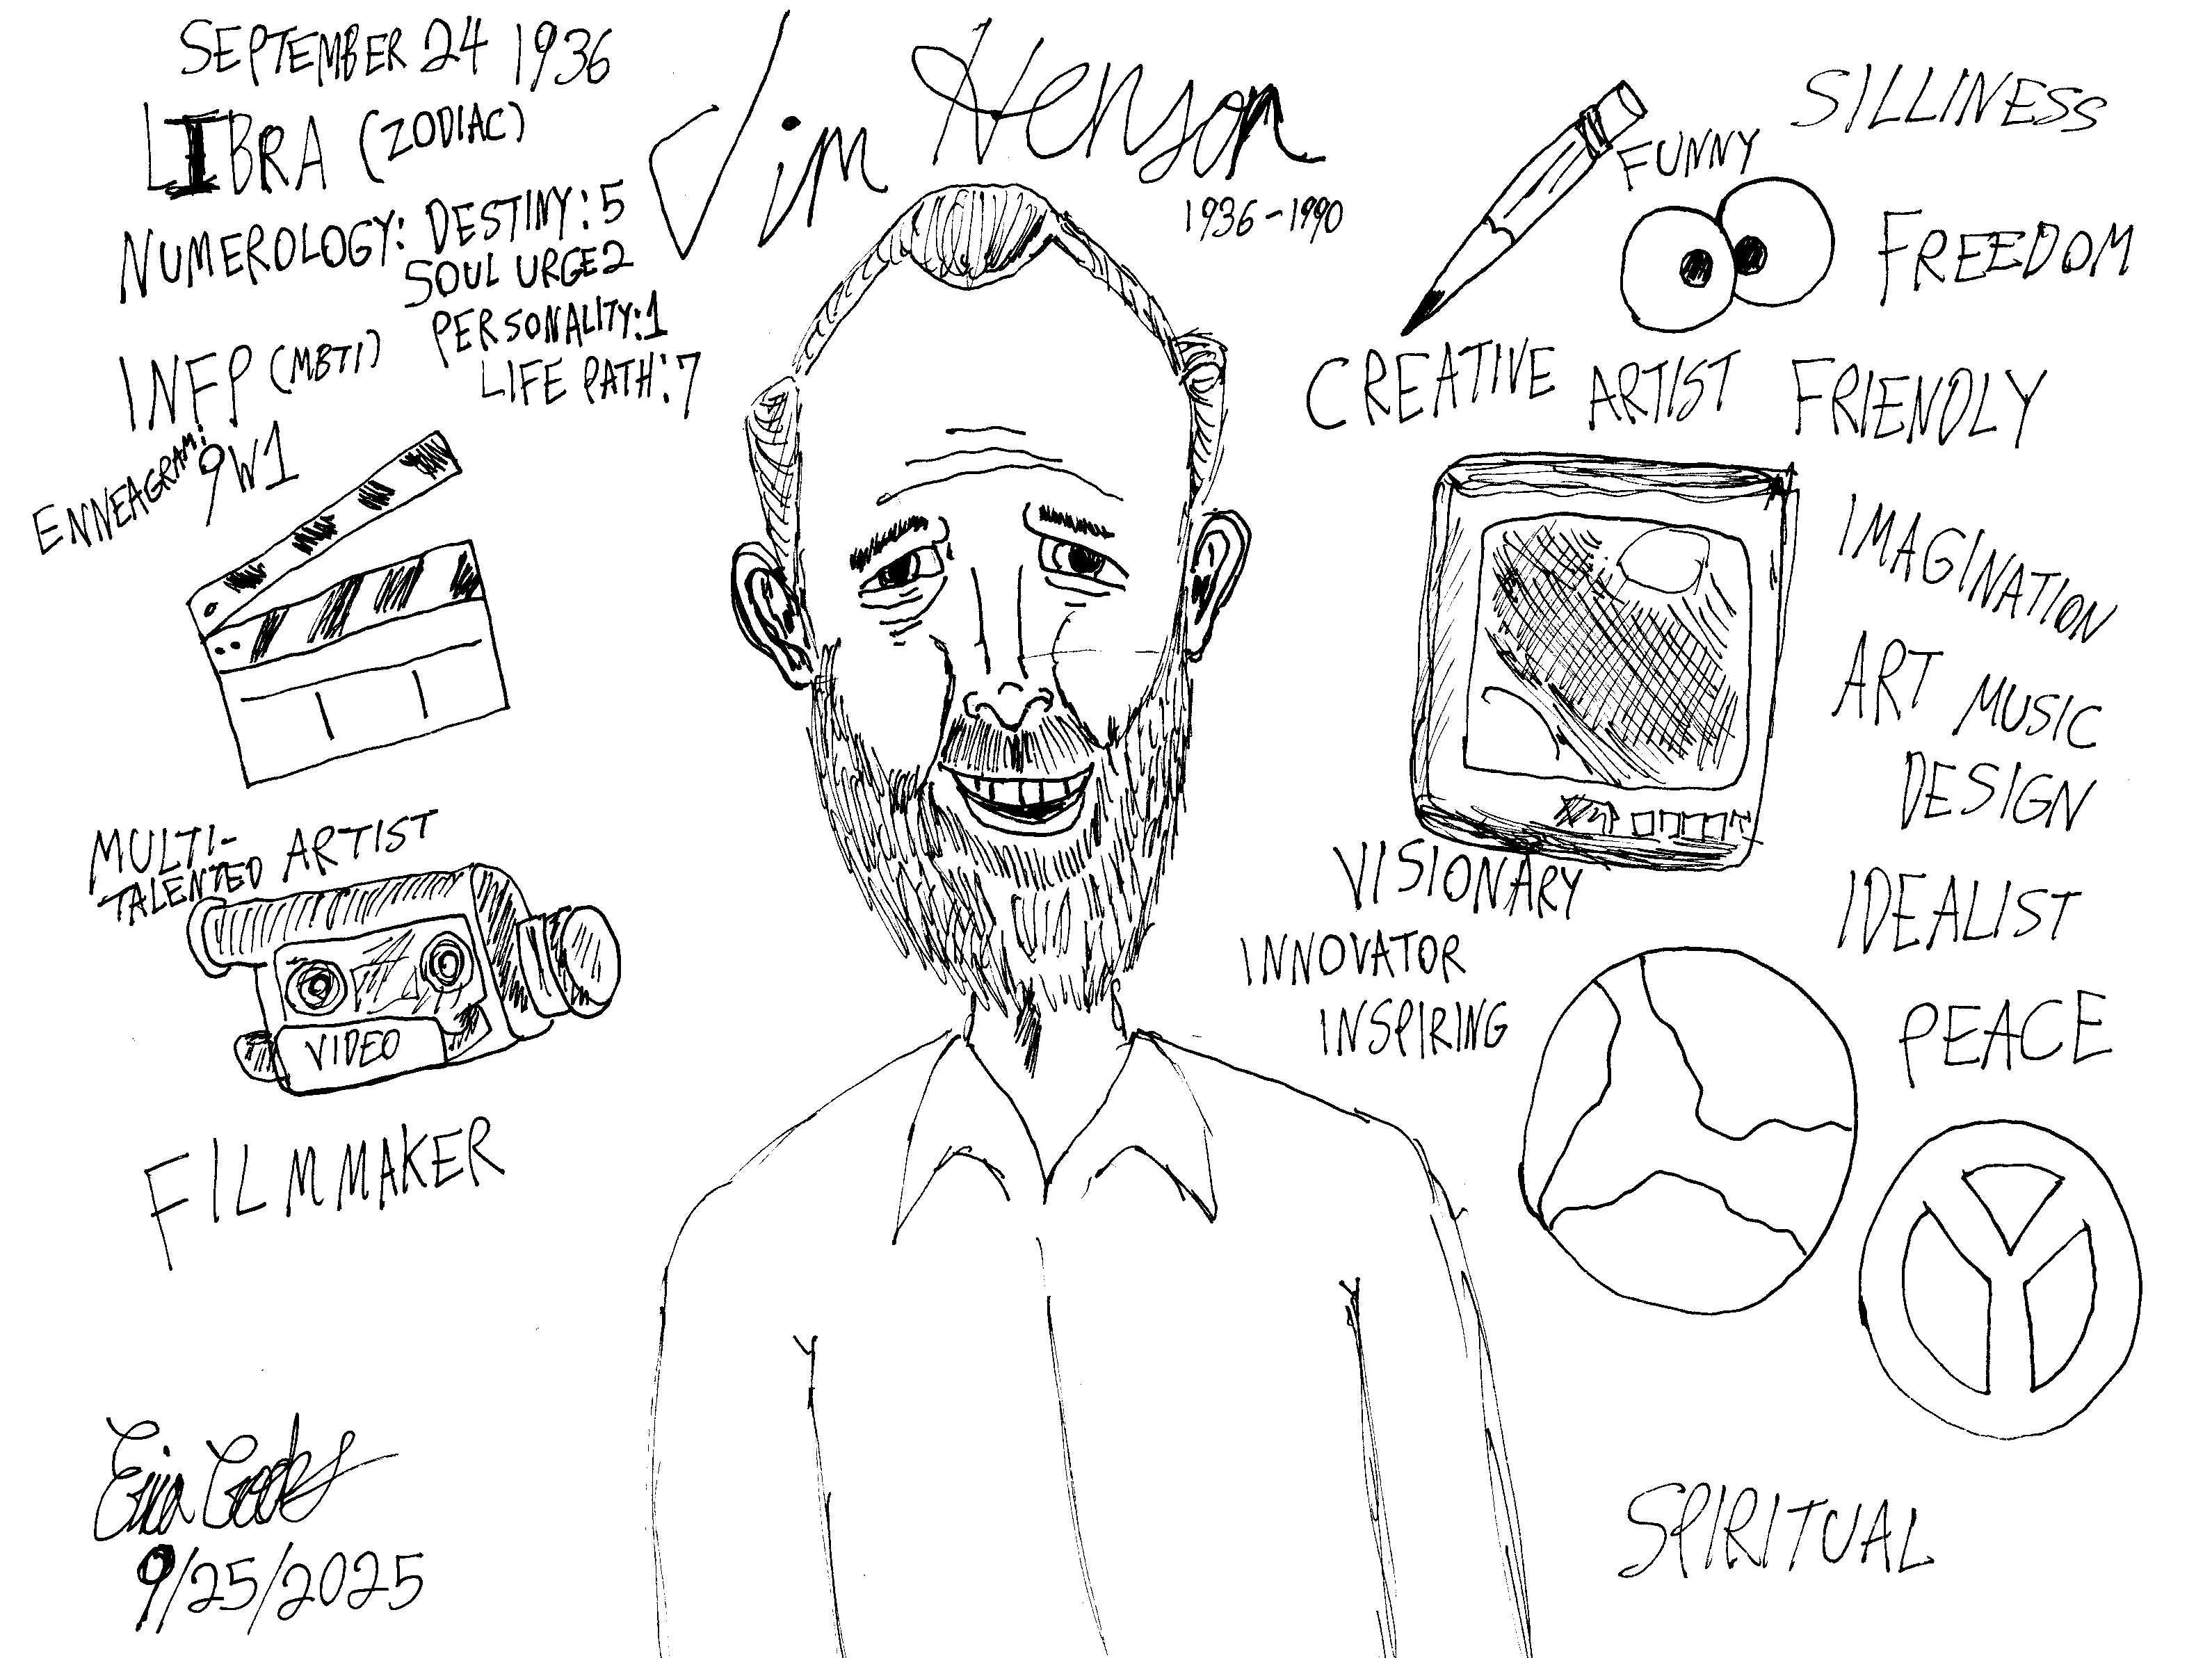 SEPTEMBER 24 1936
LIBRA (ZODIAC)
NUMEROLOGY: DESTINY: 5
SOUL URGE 2
PERSONALITY: 1
LIFE PATH: 7
INFP (MBTI)
ENNEAGRAM: 9W1
Jim Henson
1936-1990
FUNNY
SILLINESS
FREEDOM
CREATIVE ARTIST FRIENDLY
IMAGINATION
ART MUSIC
DESIGN
IDEALIST
PEACE
VISIONARY
INNOVATOR
INSPIRING
MULTI-
TALENTED ARTIST
VIDEO
FILMMAKER
SPIRITUAL
9/25/2025